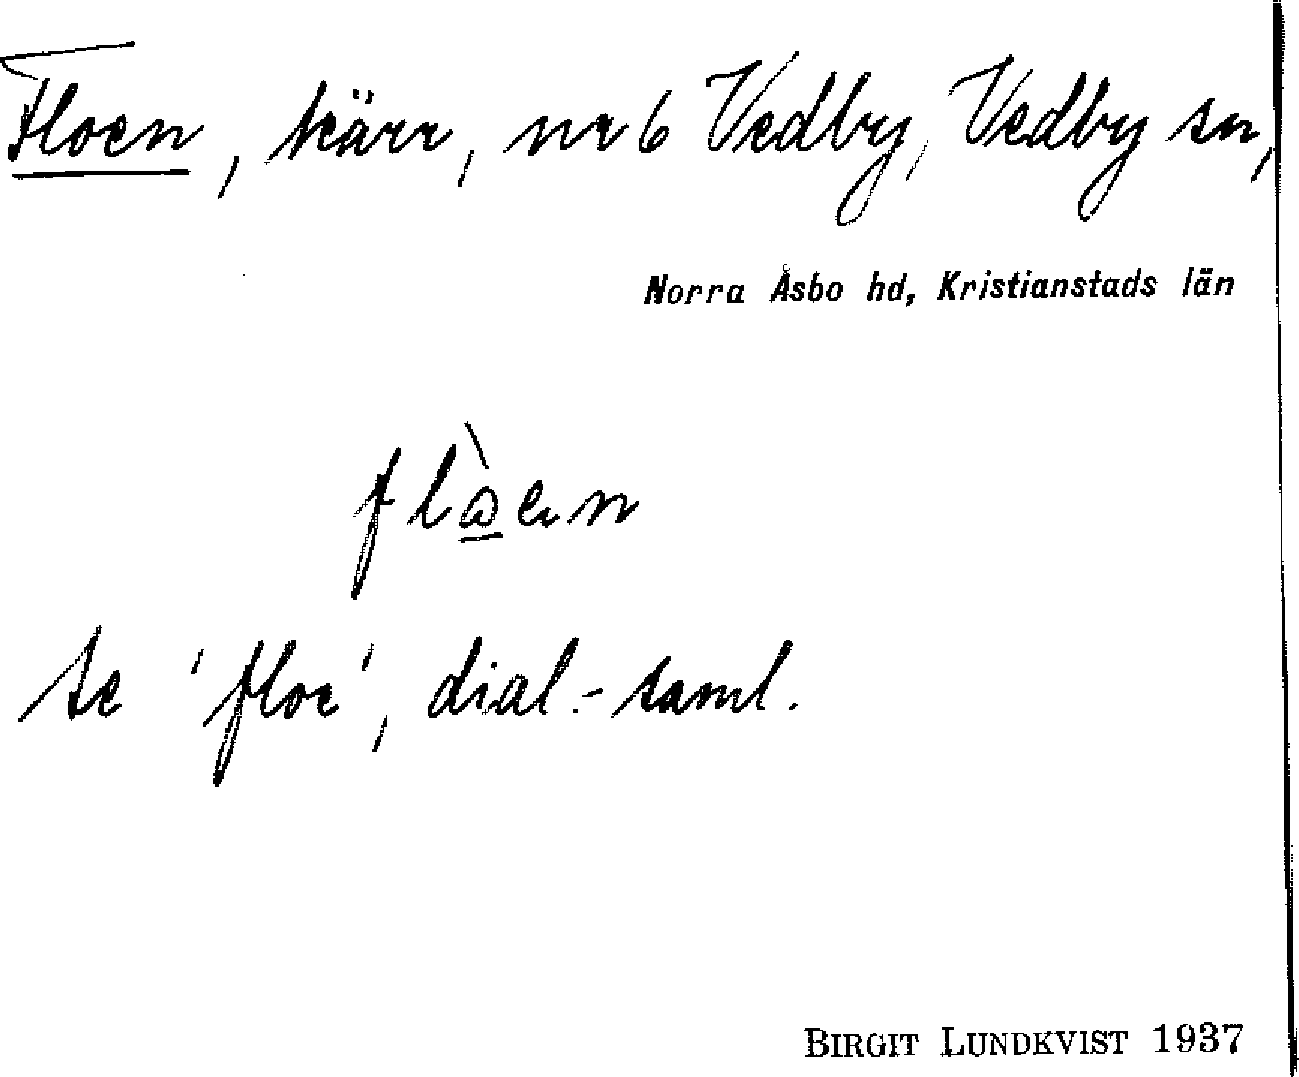 Floen, kärr, nr 6 Vedby, Vedby sn,
Norra Åsbo hd, Kristianstads län
se 'floe', dial.-saml.
BIRGIT LUNDKVIST 1937